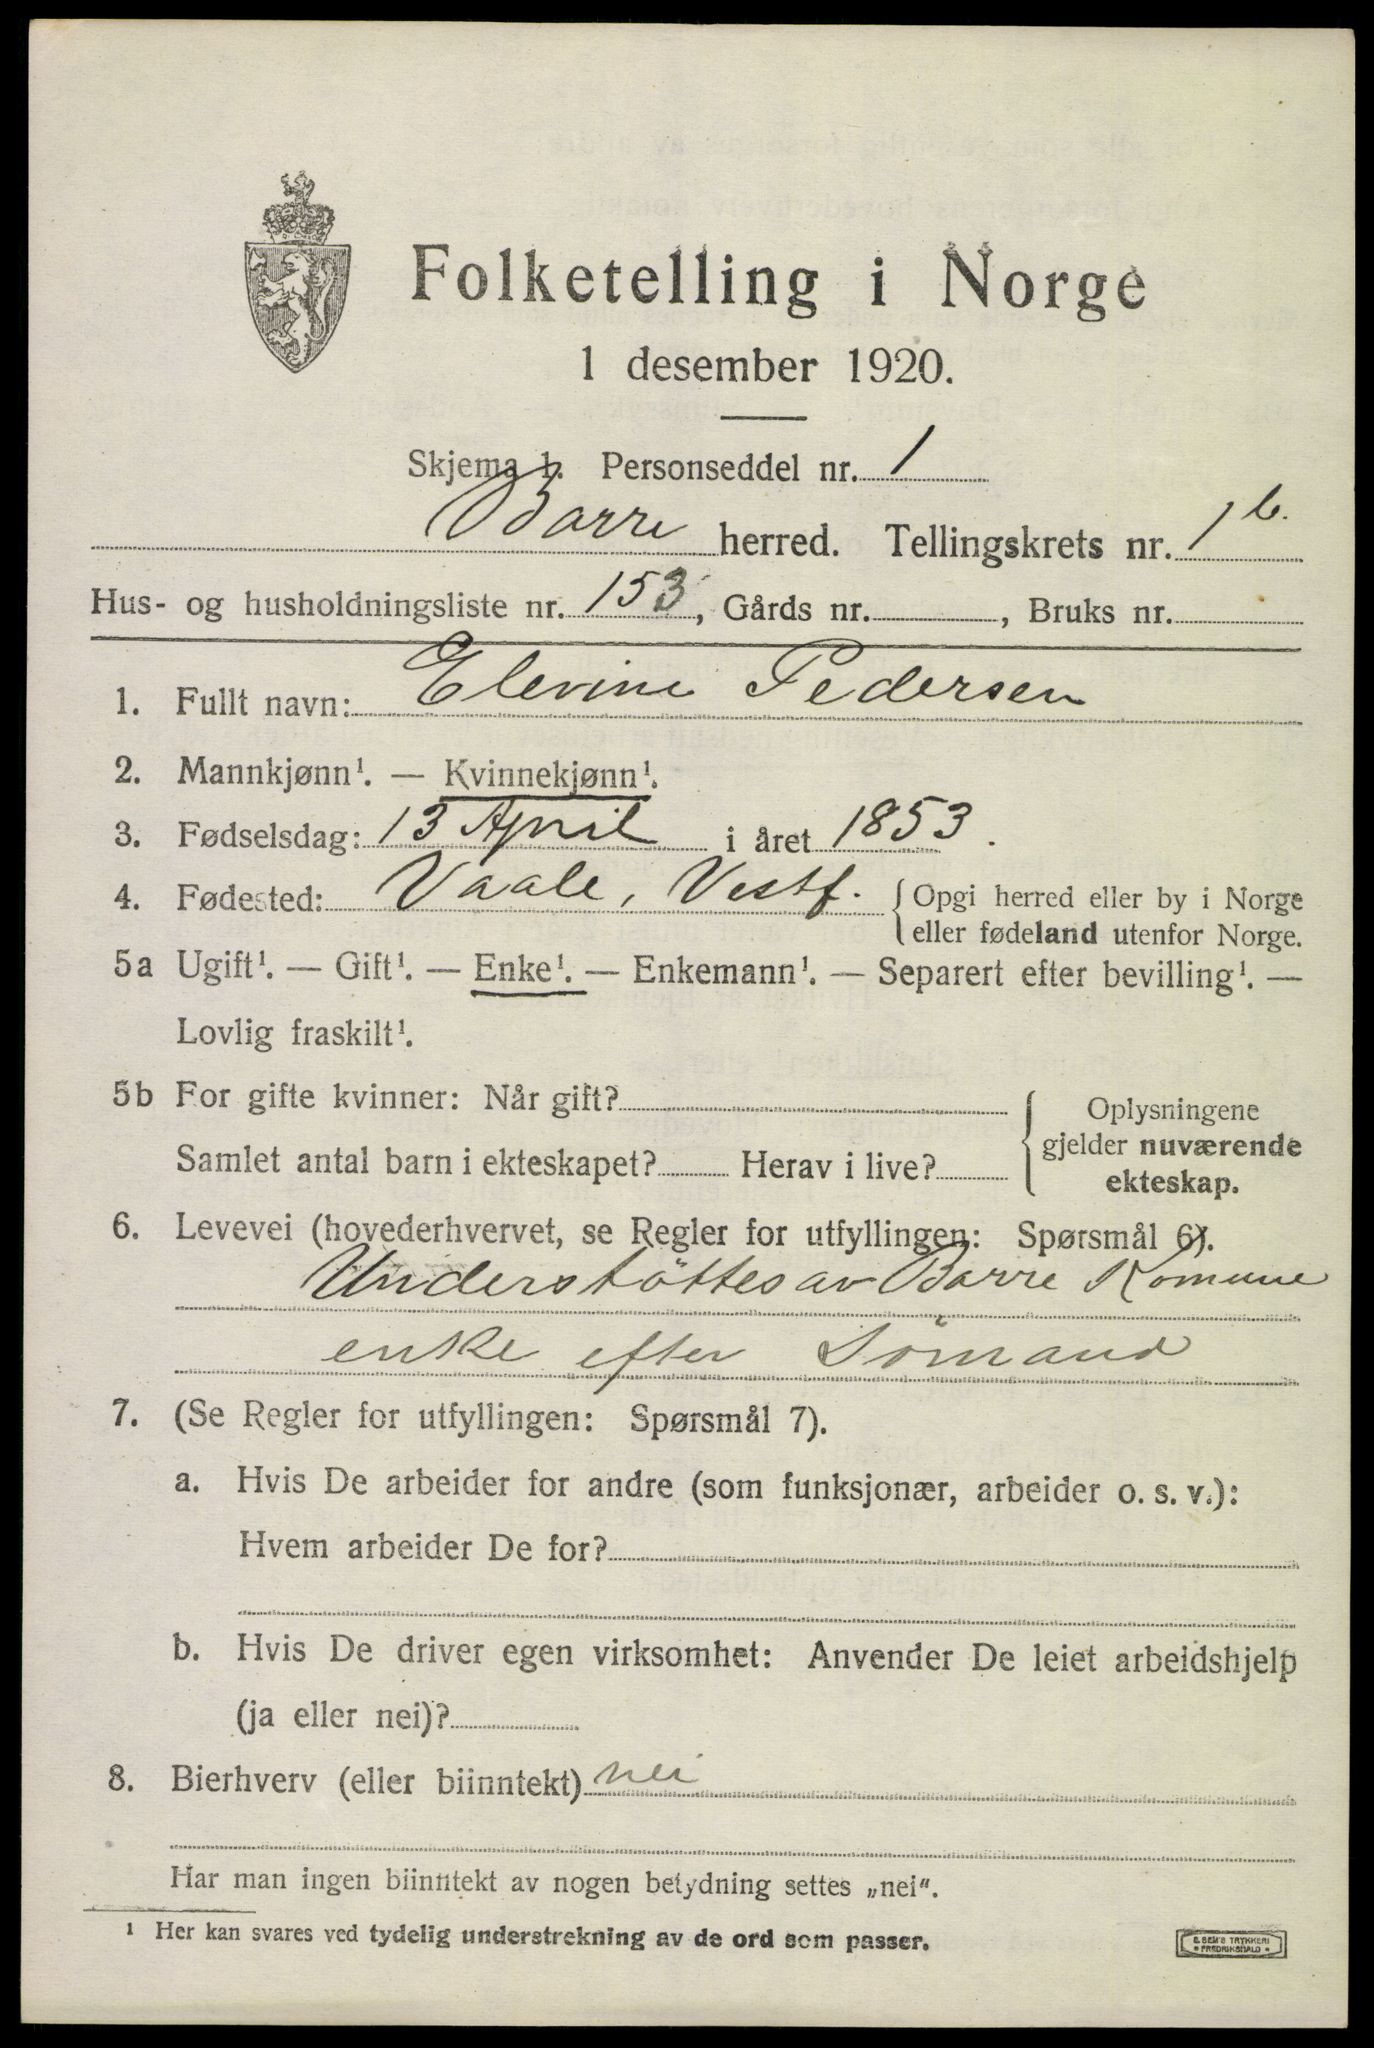 Folketelling i Norge
1 desember 1920.
Skjema 1. Personseddel nr. 1
Borre herred. Tellingskrets nr. 1 b.
Hus- og husholdningsliste nr. 153, Gårds nr. , Bruks nr.
1. Fullt navn: Elevine Pedersen
2. Mannkjønn¹. — Kvinnekjønn¹.
3. Fødselsdag: 13 April i året 1853.
4. Fødested: Vaale, Vestf. { Opgi herred eller by i Norge
eller fødeland utenfor Norge.
5a Ugift¹. — Gift¹. — Enke¹. — Enkemann¹. — Separert efter bevilling¹. —
Lovlig fraskilt¹.
5b For gifte kvinner: Når gift? { Oplysningene
gjelder nuværende
Samlet antal barn i ekteskapet? Herav i live?
ekteskap.
6. Levevei (hovederhvervet, se Regler for utfyllingen: Spørsmål 6).
Understöttes av Borre Komune
enke efter Sömand
7. (Se Regler for utfyllingen: Spørsmål 7).
a. Hvis De arbeider for andre (som funksjonær, arbeider o. s. v.):
Hvem arbeider De for?
b. Hvis De driver egen virksomhet: Anvender De leiet arbeidshjelp
(ja eller nei)?
8. Bierhverv (eller biinntekt) nei
Har man ingen biinntekt av nogen betydning settes „nei".
¹ Her kan svares ved tydelig understrekning av de ord som passer.
E. SEM'S TRYKKERI
FREDRIKSHALD